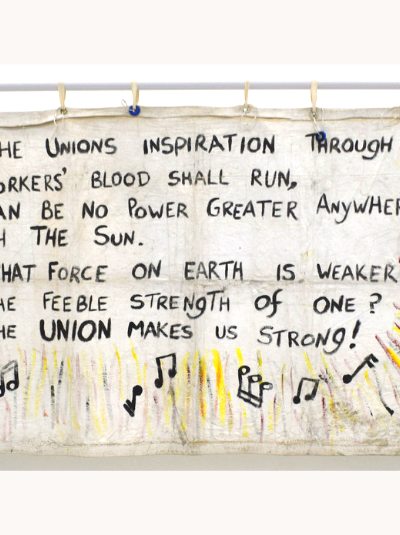 HE UNIONS INSPIRATION THROUGH
ORKERS' BLOOD SHALL RUN,
AN BE NO POWER GREATER ANYWHER
H THE SUN.
HAT FORCE ON EARTH IS WEAKER
HE FEEBLE STRENGTH OF ONE?
HE UNION MAKES US STRONG!